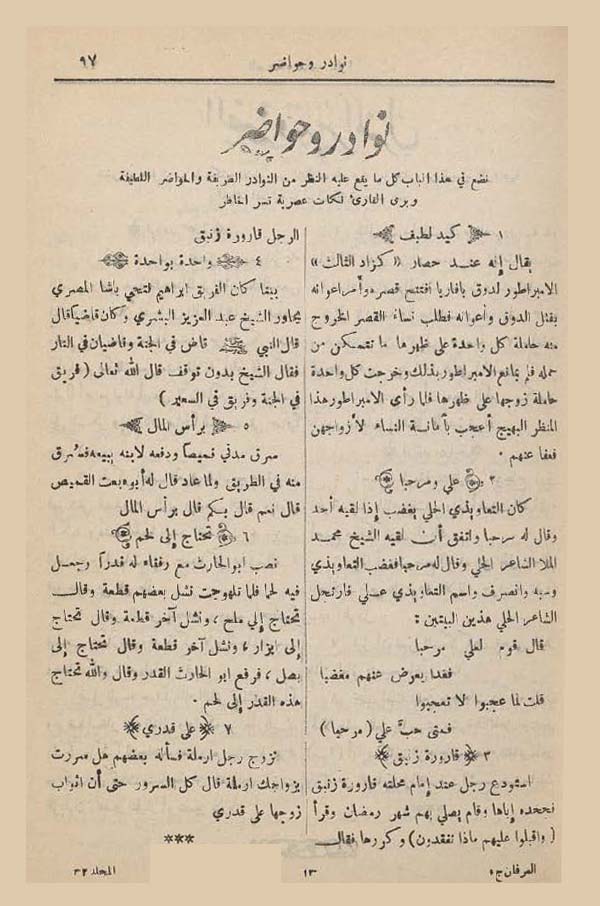 نوادر وحواضر
٩٧
نوادر وحواضر
نضع في هذا الباب كل ما يقع عليه النظر من النوادر الظريفة والحواضر اللطيفة
ويرى القارئ نكات عصرية تسر الخاطر
١ كيد لطيف
يقال إنه عند حصار «كنراد الثالث»
الامبراطور لدوق بافاريا افتتح قصره وأمر اعوانه
بقتل الدوق وأعوانه فطلب نساء القصر الخروج
منه حاملة كل واحدة على ظهرها ما تتمكن من
حمله فلم يمانع الامبراطور بذلك وخرجت كل واحدة
حاملة زوجها على ظهرها فلما رأى الامبراطور هذا
المنظر البهيج أعجب بأمانة النساء لأزواجهن
فعفا عنهم .
٢ علي ومرحبا
كان التعاويذي الحلي يغضب إذا لقيه أحد
وقال له مرحبا واتفق أن لقيه الشيخ محمد
الملا الشاعر الحلي وقال له مرحبا فغضب التعاويذي
وسبه وانصرف واسم التعاويذي علي فارتجل
الشاعر الحلي هذين البيتين :
قال قوم لعلي مرحبا
فغدا يعرض عنهم مغضبا
قلت لما عجبوا لا تعجبوا
فمتى حبَّ علي (مرحبا)
٣ قارورة زنبق
استودع رجل عند إمام محلته قارورة زنبق
فجحده إياها وقام يصلي بهم شهر رمضان وقرأ
(واقبلوا عليهم ماذا تفقدون) وكررها فقال
الرجل قارورة زنبق
٤ واحدة بواحدة
بينا كان الفريق ابراهيم فتحي باشا المصري
يحاور الشيخ عبد العزيز البشري وكان قاضيا قال
قال النبي ﷺ قاض في الجنة وقاضيان في النار
فقال الشيخ بدون توقف قال الله تعالى (فريق
في الجنة وفريق في السعير)
٥ برأس المال
سرق مدني قميصا ودفعه لابنه يبيعه فسُرق
منه في الطريق ولما عاد قال له أبوه بعت القميص
قال نعم قال بكم قال برأس المال
٦ تحتاج إلى لحم
نصب ابو الحارث مع رفقاء له قدرا وجعل
فيه لحما فلما تلهوجت نشل بعضهم قطعة وقال
تحتاج إلي ملح ، ونشل آخر قطعة وقال تحتاج
إلى ابزار ، ونشل آخر قطعة وقال تحتاج إلى
بصل ، فرفع ابو الحارث القدر وقال والله تحتاج
هذه القدر إلى لحم .
٧ على قدري
تزوج رجل ارملة فسأله بعضهم هل سررت
بزواجك ارملة قال كل السرور حتى أن اثواب
زوجها على قدري
***
العرفان ج ٥
١٣
المجلد ٣٢